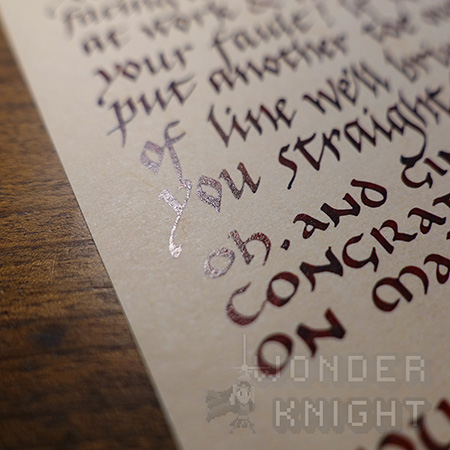 at work &
your fault!
put another toe
of line we'll
you straight
oh, and
CONGRA
ON MA
WONDER
KNIGHT